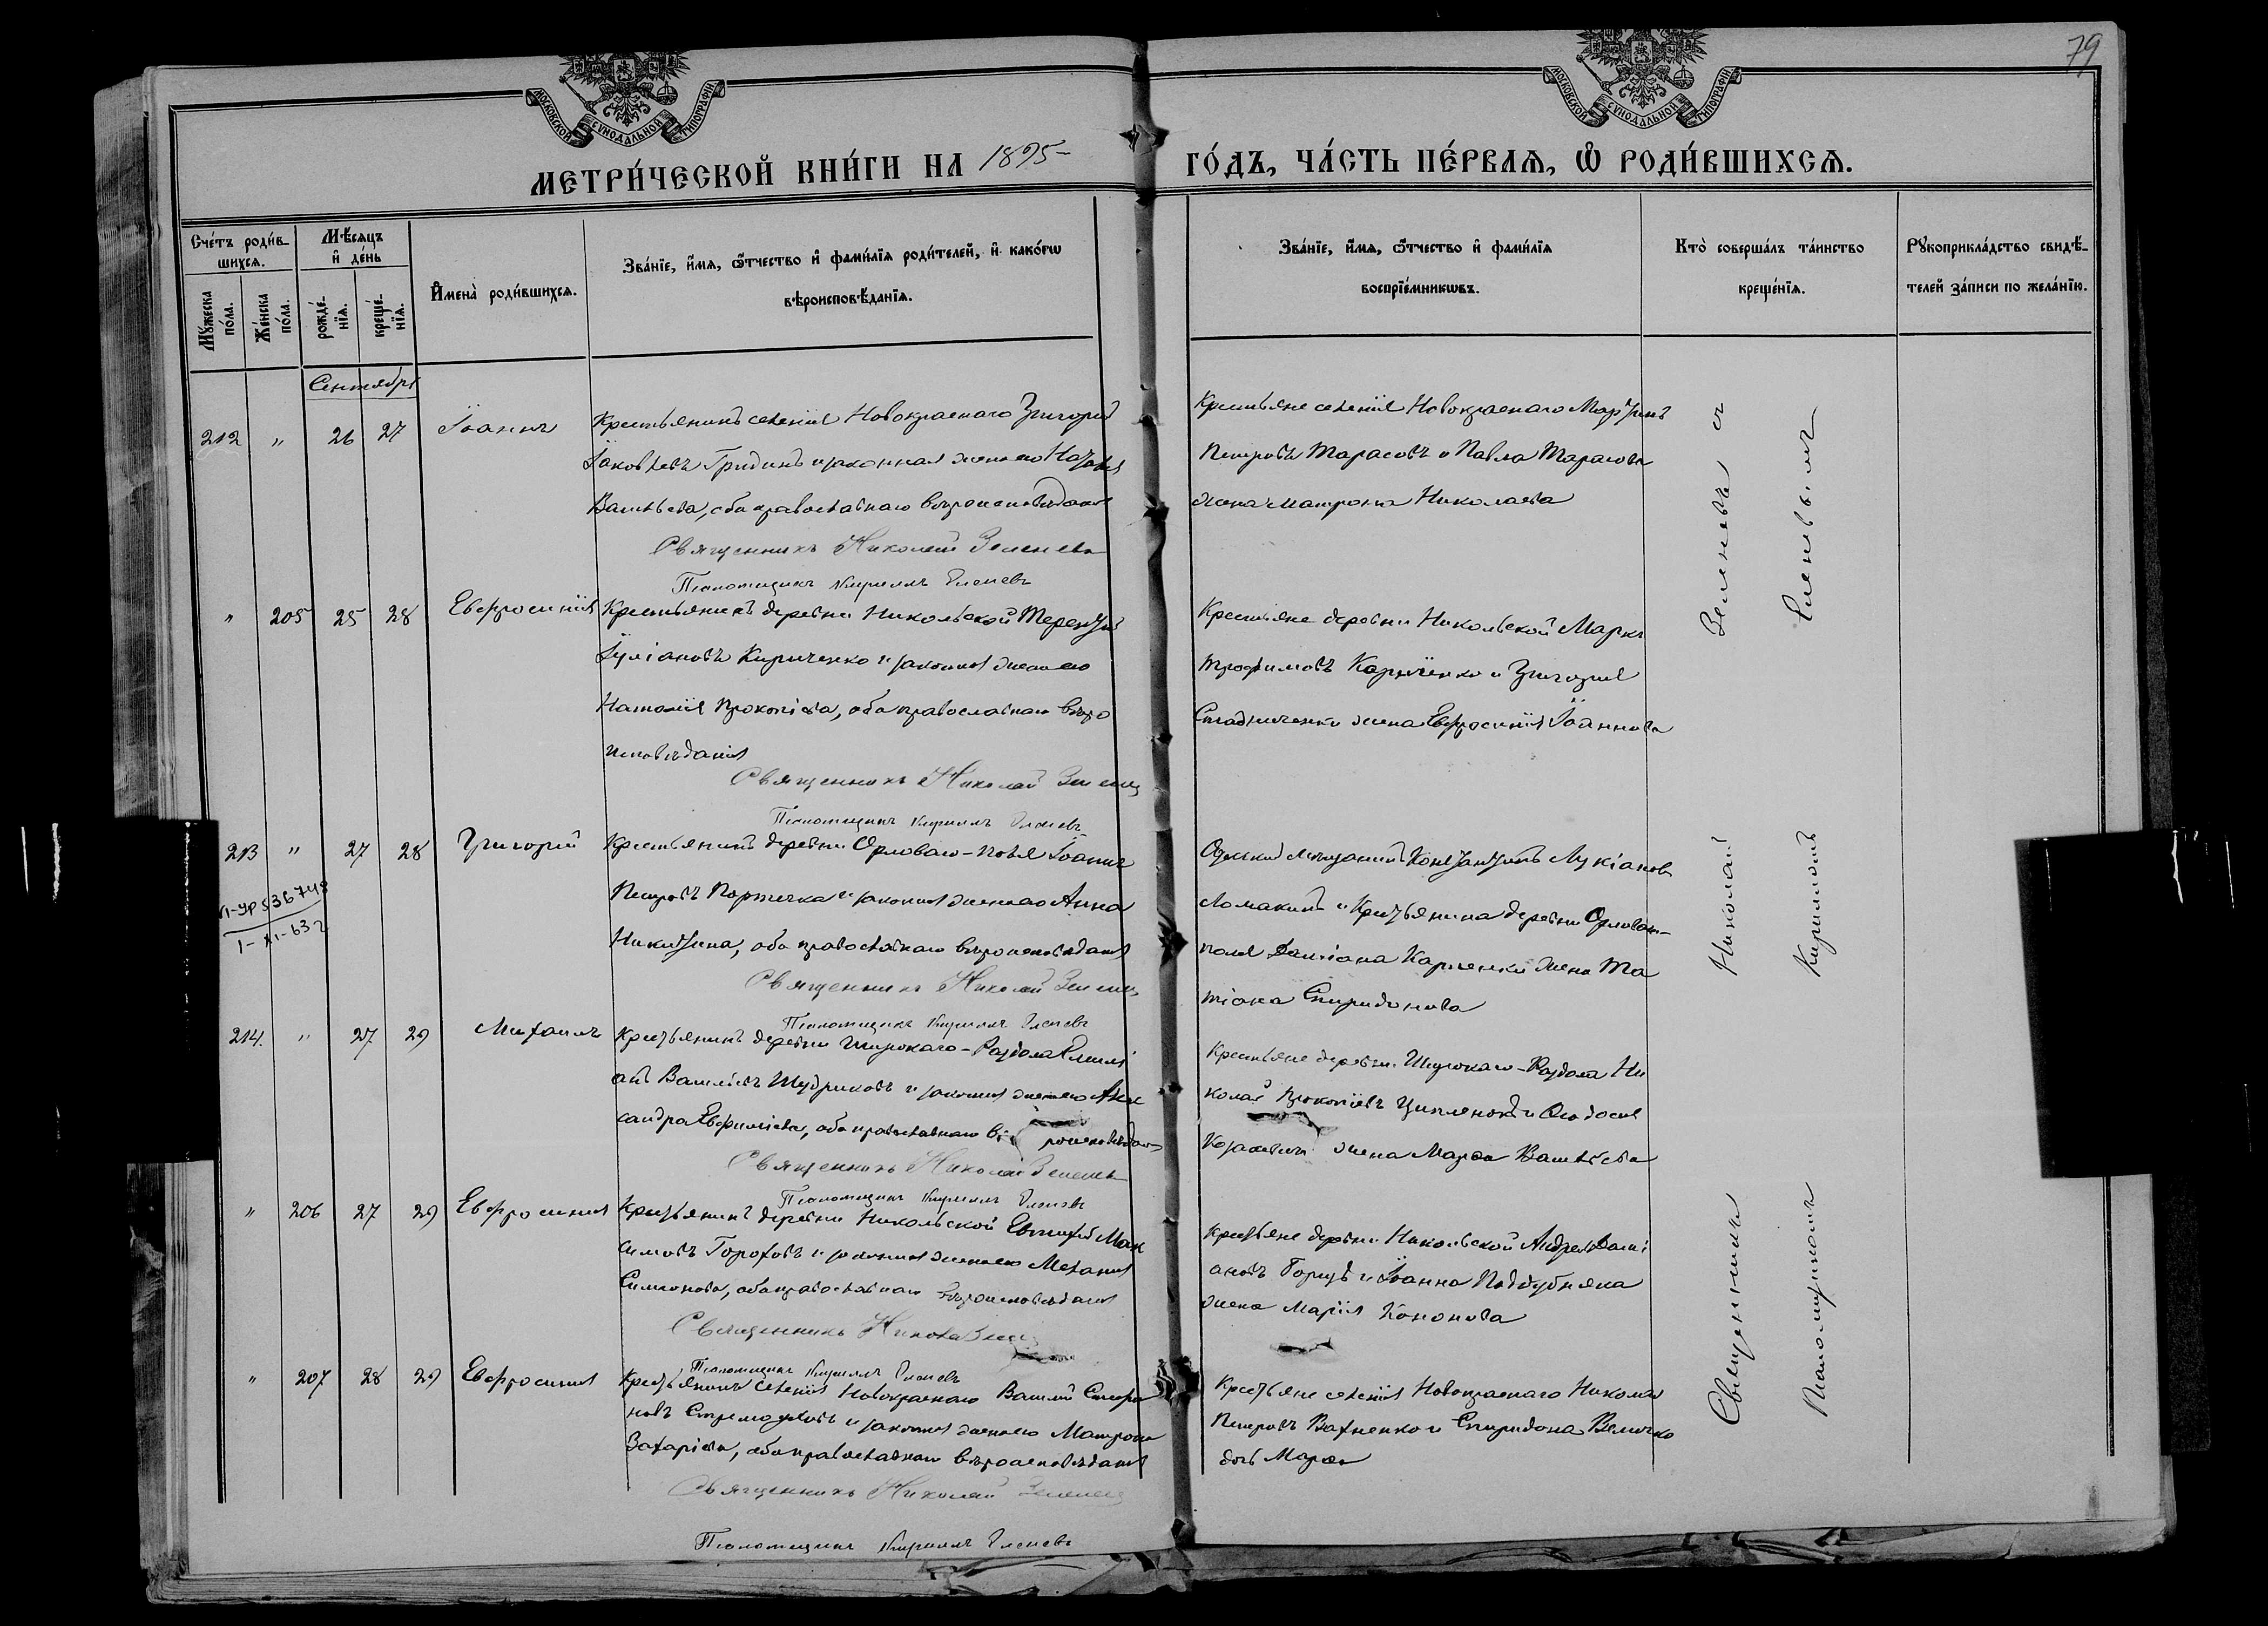 79
МОСКОВСКОЙ СѴНОДАЛЬНОЙ ТИПОГРАФІИ
МОСКОВСКОЙ СѴНОДАЛЬНОЙ ТИПОГРАФІИ
МЕТРИ́ЧЕСКОЙ КНИ́ГИ НА 1895 ГО́ДЪ, ЧА́СТЬ ПЕ́РВАЯ, Ѽ РОДИ́ВШИХСЯ.
Сче́тъ роди́в-
шихся.
Мꙋ́жеска
по́ла.
Же́нска
по́ла.
Мѣ́сяцъ
и҆ де́нь
рожде́-
нїя.
креще́-
нїя.
И҆мена̀ роди́вшихся.
Зва́нїе, и҆́мя, ѻ҆́тчество и҆ фами́лїя роди́телей, и҆ како́гѡ
вѣроисповѣ́данїя.
Зва́нїе, и҆́мя, ѻ҆́тчество и҆ фами́лїя
воспрїе́мникѡвъ.
Кто̀ соверша́лъ та́инство
креще́нїя.
Рꙋкоприкла́дство свидѣ́-
телей за́писи по жела́нїю.
Сентябрь
212 " 26 27 Іоаннъ
Крестьянинъ селенія Новокраснаго Григорій
Іаковлевъ Гридинъ и законная жена его Наталія
Васильева, оба православнаго вѣроисповѣданія
Священникъ Николай Зеленевъ
Псаломщикъ Кириллъ Еленевъ
Крестьяне селенія Новокраснаго Мартинъ
Петровъ Тарасовъ и Павла Тарасова
жена Матрона Николаева
" 205 25 28 Евфросинія
Крестьянинъ деревни Никольской Терентій
Іуліановъ Кириченко и законная жена его
Наталія Прокопіева, оба православнаго вѣро
исповѣданія
Священникъ Николай Зеленевъ
Псаломщикъ Кириллъ Еленевъ
Крестьяне деревни Никольской Маркъ
Трофимовъ и Григорія
жена Евфросинія Іоаннова
213 " 27 28 Григорій
Крестьянинъ деревни Орловаго-поля Іоаннъ
Петровъ и законная жена его Анна
Никитина, оба православнаго вѣроисповѣданія
Священникъ Николай Зеленевъ
Псаломщикъ Кириллъ Еленевъ
мѣщанинъ Константинъ Лукіановъ
Ломакинъ и Крестьянина деревни Орловаго-
поля Даміана Карпенки жена Та
тіана Спиридонова
VI-УР 536748
1-XI-63 г
214. " 27 29 Михаилъ
Крестьянинъ деревни Широкаго-Раздола Емилі
анъ Васильевъ Шудриковъ и законная жена его Алек
сандра Евфиміева, оба православнаго вѣроисповѣданія
Священникъ Николай Зеленевъ
Псаломщикъ Кириллъ Еленевъ
Крестьяне деревни Широкаго-Раздола Ни
колай Прокопіевъ Цыпленковъ и Ѳеодосія
жена Марѳа Васильева
" 206 27 29 Евфросинія
Крестьянинъ деревни Никольской Евтихій Мак
симовъ Гороховъ и законная жена его Меланія
Симеонова, оба православнаго вѣроисповѣданія
Священникъ Николай Зеленевъ
Псаломщикъ Кириллъ Еленевъ
Крестьяне деревни Никольской Андрей Дамі
ановъ и Іоанна Поддубняка
жена Марія Кононова
" 207 28 29 Евфросинія
Крестьянинъ селенія Новокраснаго Василій Стефа
новъ и законная жена его Матрона
Захаріева, оба православнаго вѣроисповѣданія
Священникъ Николай Зеленевъ
Псаломщикъ Кириллъ Еленевъ
Крестьяне селенія Новокраснаго Николай
Петровъ Вахненко и Спиридона Величко
дочь Марѳа
Священникъ Николай Зеленевъ съ
Псаломщикомъ Кирилломъ Еленевымъ